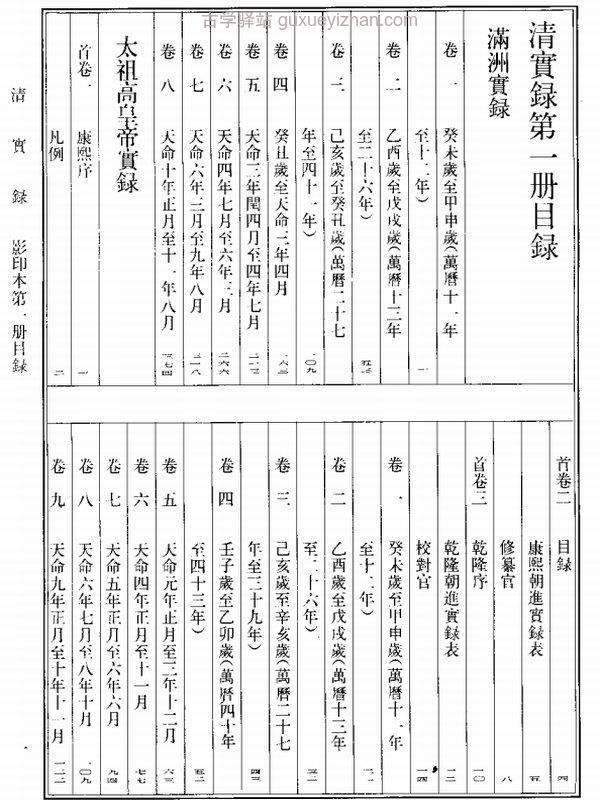 古学驿站 guxueyizhan.com
清實録第一册目録
滿洲實録
卷一 癸未歲至甲申歲（萬曆十一年
至十二年） 一
卷二 乙酉歲至戊戌歲（萬曆十三年
至二十六年）
卷三 己亥歲至癸丑歲（萬曆二十七
年至四十一年） 一〇九
卷四 癸丑歲至天命三年四月 一六三
卷五 天命三年閏四月至四年七月
卷六 天命四年七月至六年三月 二六六
卷七 天命六年三月至九年八月 三一八
卷八 天命十年正月至十一年八月 三七四
太祖高皇帝實録
首卷一 康熙序 一
凡例 二
首卷二 目録 四
康熙朝進實録表 五
修纂官 八
首卷三 乾隆序 一〇
乾隆朝進實録表 一二
校對官 一四
卷一 癸未歲至甲申歲（萬曆十一年
至十二年）
卷二 乙酉歲至戊戌歲（萬曆十三年
至二十六年）
卷三 己亥歲至辛亥歲（萬曆二十七
年至三十九年） 四三
卷四 壬子歲至乙卯歲（萬曆四十年
至四十三年） 五二
卷五 天命元年正月至三年十二月 六三
卷六 天命四年正月至十一月 七七
卷七 天命五年正月至六年六月 九四
卷八 天命六年七月至八年十月 一〇九
卷九 天命九年正月至十年十一月 一二二
清實録 影印本第一册目録